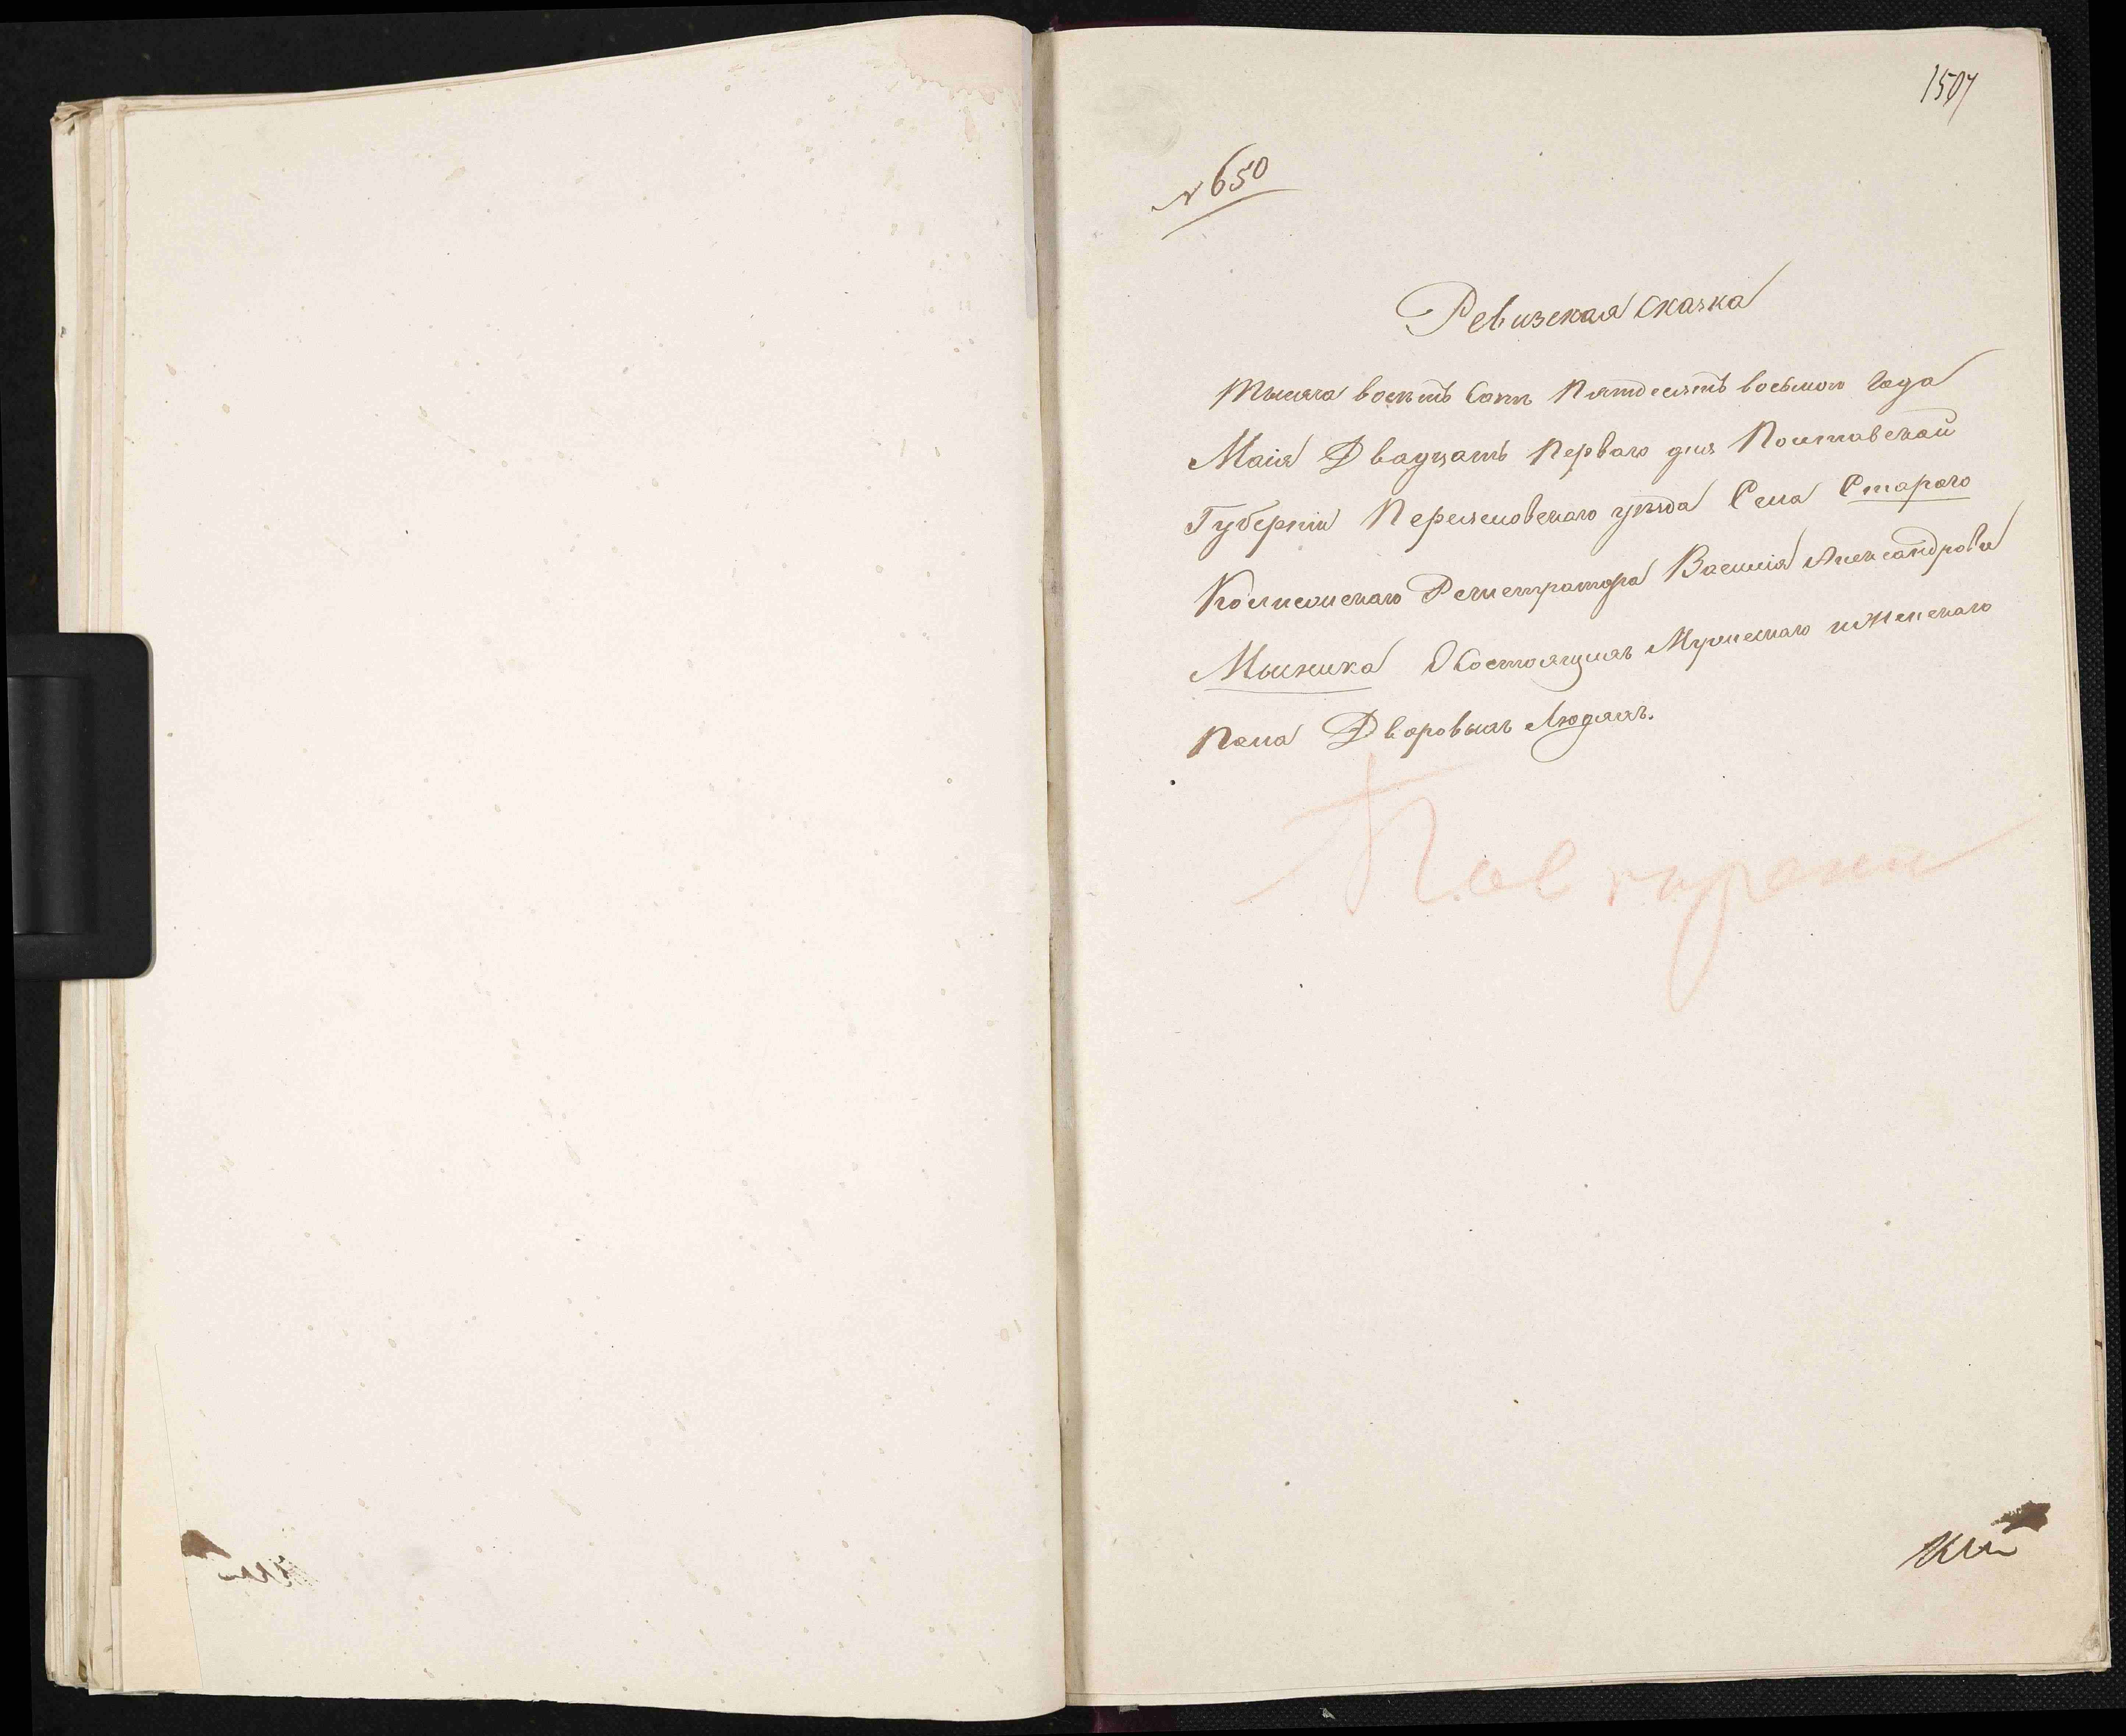 1507
№ 650
Ревизская сказка
Тысяча восемь Сотъ Пятдесятъ восьмого Года
Маія Двадцать Перваго дня Полтавской
Губерніи Переяславскаго уѣзда Села Стараго
Колежскаго Регистратора Василія Александрова
О Состоящихъ Мужескаго иженскаго
Пола Дворовыхъ Людяхъ.